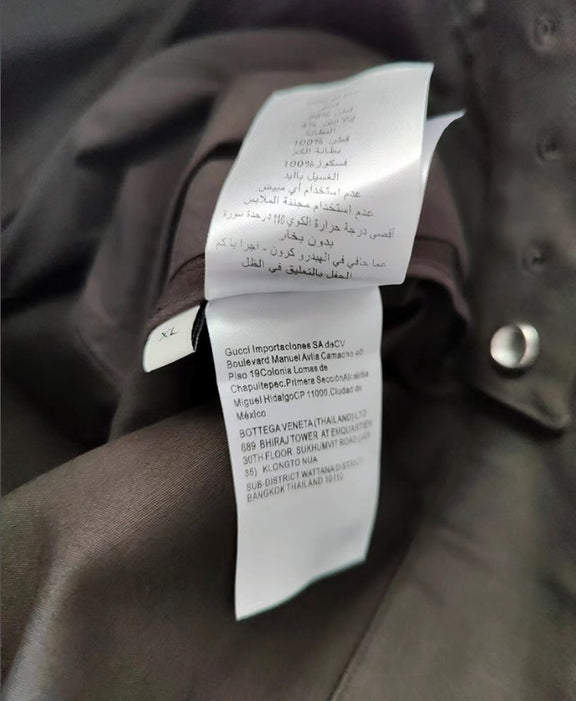 قطن 100%
البطانة
قطن 100%
بطانة الكم
فسكوز 100%
الغسيل باليد
عدم استخدام أي مبيض
عدم استخدام مجففة الملابس
أقصى درجة حرارة الكوي 110 درجة سورة
بدون بخار
عما حافي في الهيدرو كربون - اجرا با كم
الحفل بالتعليق في الظل
XL
Gucci Importaciones SA deCV
Boulevard Manuel Avila Camacho 40
Piso 19Colonia Lomas de
Chapultepec.Primera SecciónAlcaldía
Miguel HidalgoCP 11000.Ciudad de
México
BOTTEGA VENETA (THAILAND) LTD
689 BHIRAJ TOWER AT EMQUARTIER
30TH FLOOR SUKHUMVIT ROAD (SOI
35) KLONGTO NUA
SUB-DISTRICT WATTANA DISTRICT
BANGKOK THAILAND 10110